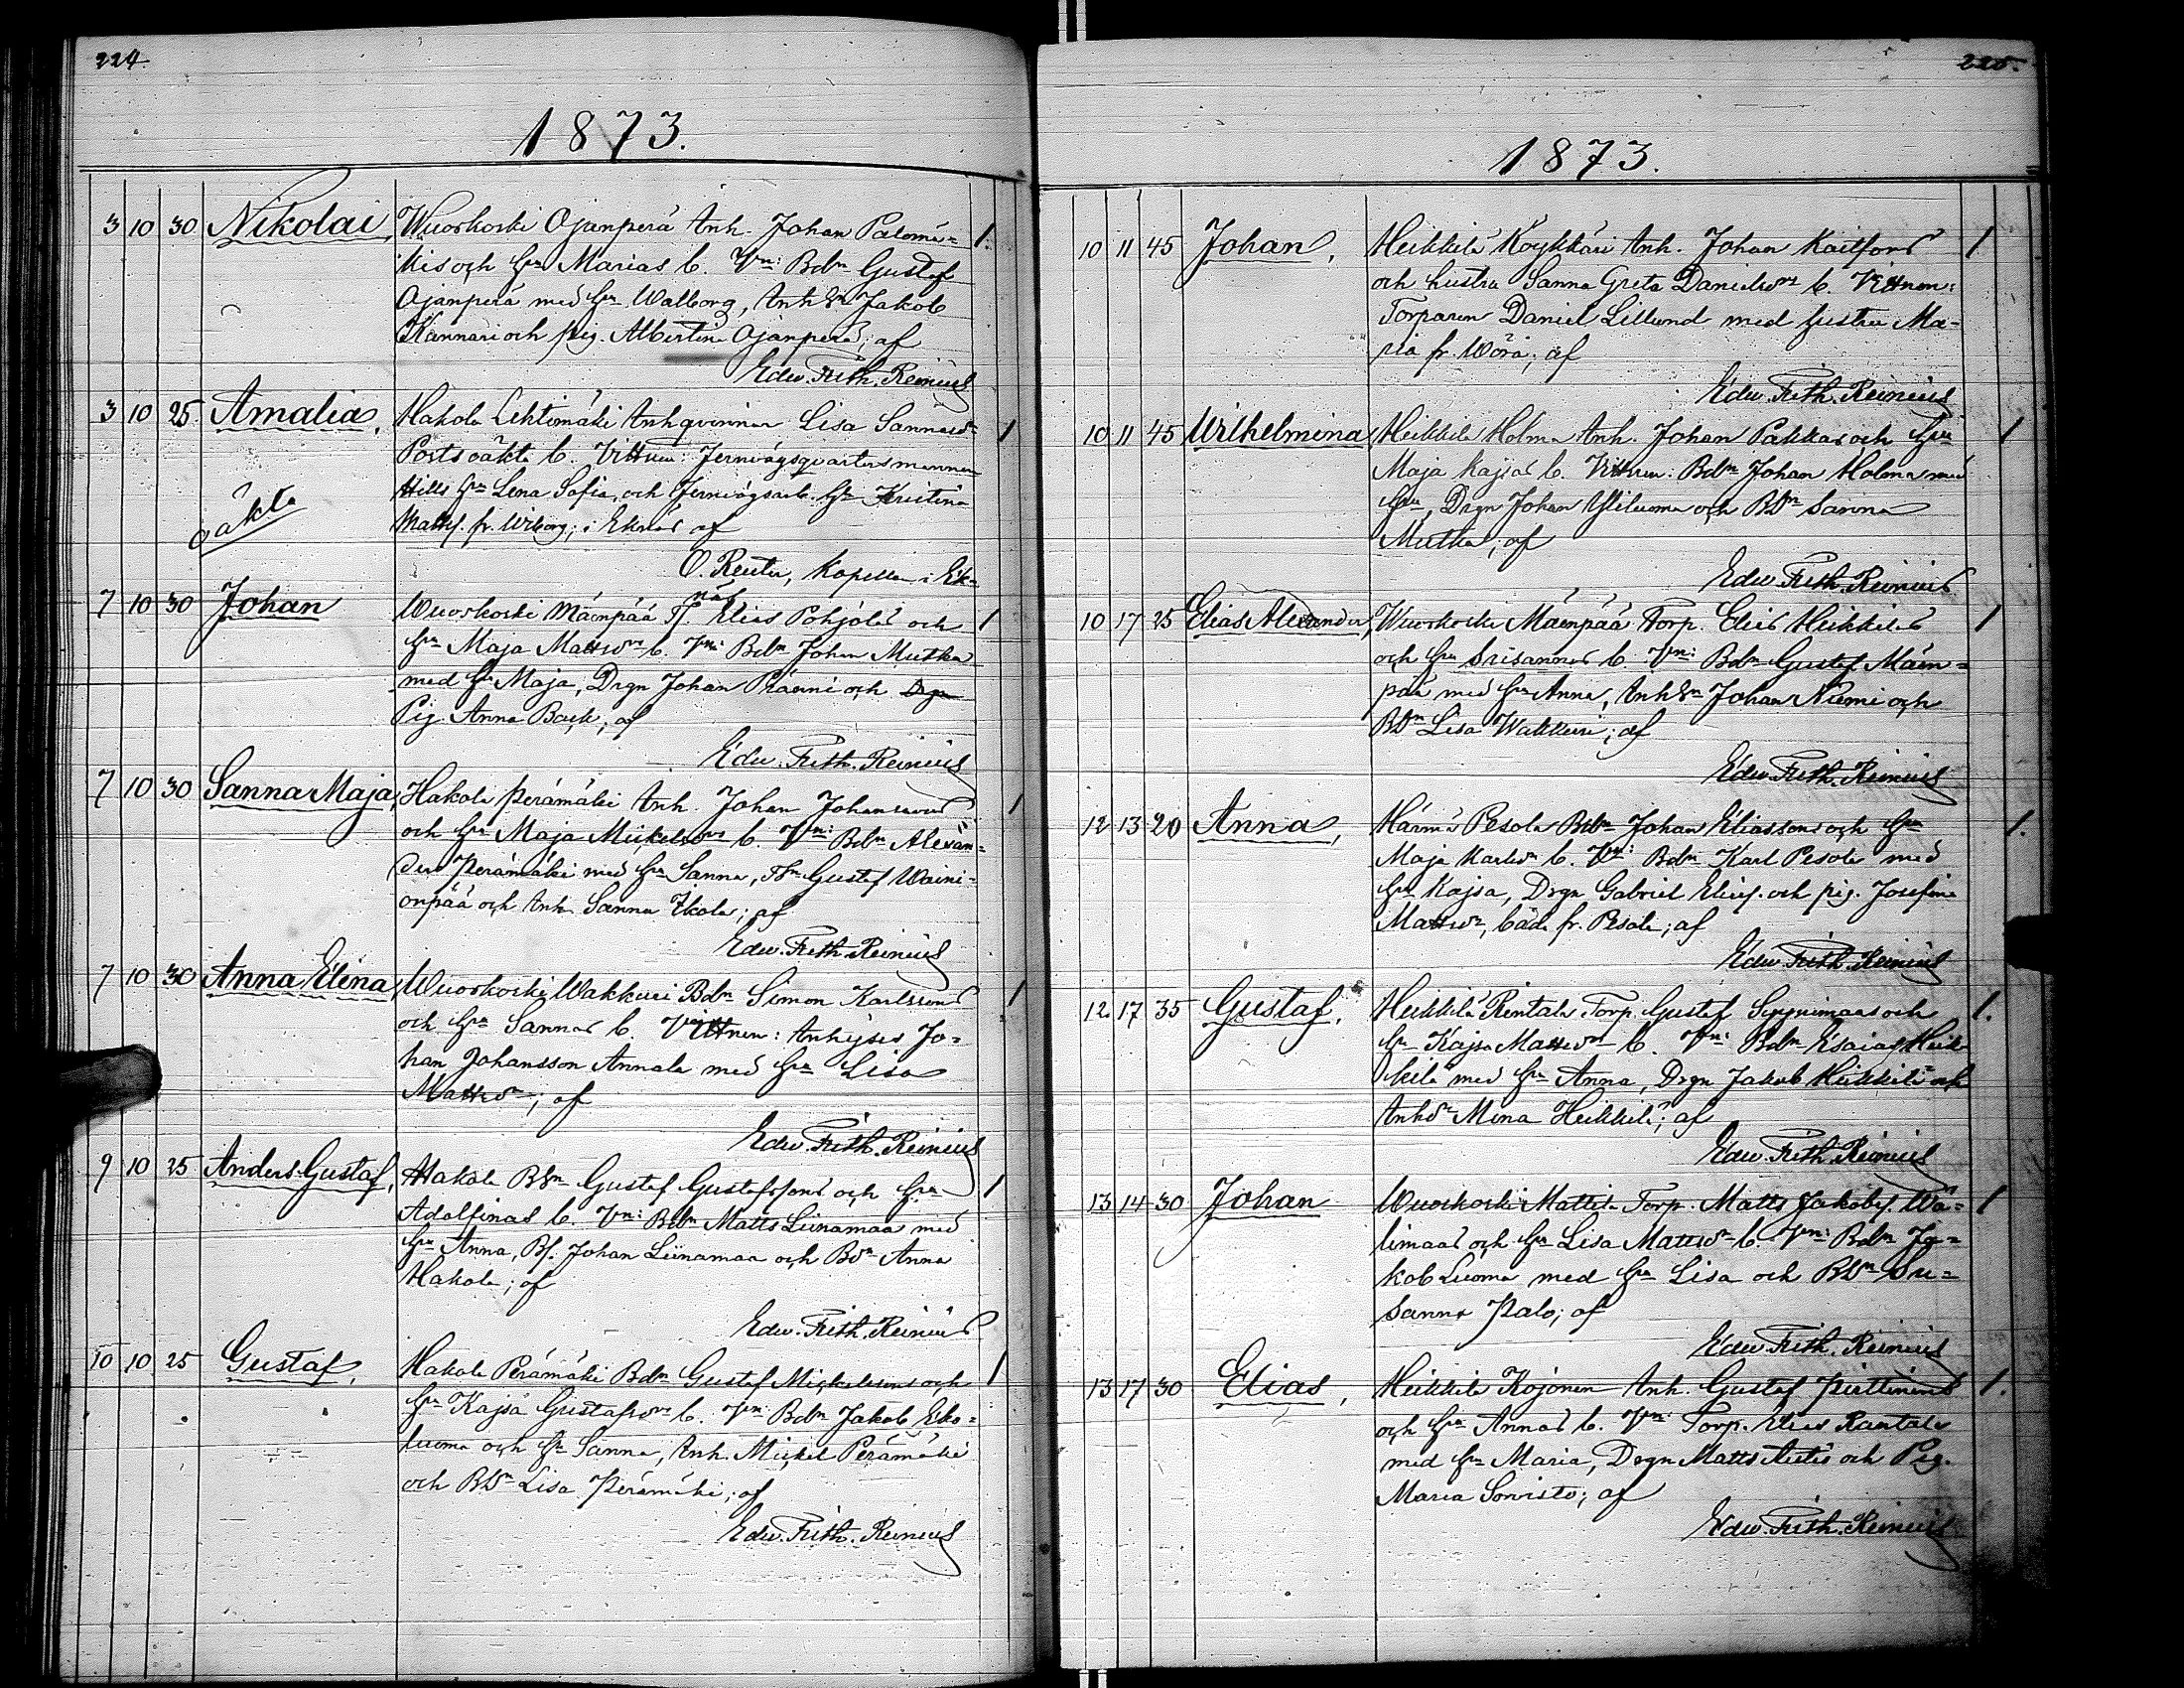 224.
1873.
3 10 30 Nikolai, Wuoskoski Ojanperä Inh. Johan Palomä=
kis och hu Marias b. Vn: Bdn Gustaf
Ojanperä med hu Walborg, Inh Sn Jakob
Kannari och pig. Albertina Ojanperä; af
Edw. Frith. Reinius
3 10 25 Amalia, Hakola Lehtimäki Inhqvinnan Lisa Sannasdr
oäkta b. Vittnen: Jernvägsqvartersmannen
Hills hu Lena Sofia, och Jernvägsarb. hu Kristina
oäkta
Matts. fr. Wiborg; i Eknäs af
O. Reuter, Kapellan i Ek=
näs
7 10 30 Johan Wuoskoski Mäenpää Tf. Elias Pohjolas och
hu Maja Mattsdrs b. Vn: Bdn Johan Mutka
med hu Maja, Drgn Johan och Drgn
Pig. Anna Back; af
Edw. Frith. Reinius
7 10 30 Sanna Maja, Hakola Perämäki Inh. Johan Johanssons
och hu Maja Mickelsdrs b. Vn: Bdn Alexan=
der Perämäki med hu Sanna, Gustaf Waini=
onpää och Inh Sanna Ikola; af
Edw. Frith. Reinius
7 10 30 Anna Elina, Wuoskoski Wakkuri Bdn Simon Karlssons
och hu Sannas b. Vittnen: Inhyses Jo=
han Johansson Annala med hu Lisa
Mattsdr; af
Edw. Frith. Reinius
9 10 25 Anders Gustaf, Hakola BSn Gustaf Gustafssons och hu
Adolfinas b. Vn: Bdn Matts Liinamaa med
hu Anna, Bs. Johan Liinamaa och BDr Anna
Hakola; af
Edw. Frith. Reinius
10 10 25 Gustaf, Hakola Perämäki Bdn Gustaf Mickelssons och
hu Kajsa Gustafsdrs b. Vn: Bdn Jakob
luoma och hu Sanna, Inh. Mickel Perämäki
och BDr Lisa Perämäki; af
Edw. Frith. Reinius
225.
1873.
10 11 45 Johan, Heikkilä Köykkäri Inh. Johan Kaitfors
och hustru Sanna Greta Danielsdrs b. Vittnen:
Torparen Daniel Lillund med hustru Ma=
ria fr. Wörå; af
Edw. Frith. Reinius
10 11 45 Wilhelmina, Heikkilä Holma Inh. Johan Pakkas och hu
Maja Kajsas b. Vittnen: Bdn Johan Holma med
hu, Drgn Johan Yliluoma och BDr Sanna
Mutka; af
Edw. Frith. Reinius
10 17 25 Elias Alexander, Wuoskoski Mäenpää Torp. Elias Heikkiläs
och hu Susannas b. Vn: Bdn Gustaf Mäen=
pää med hu Anna, Inh Sn Johan Niemi och
BDr Lisa Wakkuri; af
Edw. Frith. Reinius
12 13 20 Anna, Härmä Pesola Bdn Johan Eliassons och hu
Maja Karlsdrs b. Vn: Bdn Karl Pesola med
hu Kajsa, Drgn Gabriel Elias. och pig. Josefina
Mattsdr, båda fr. Pesola; af
Edw. Frith. Reinius
12 17 35 Gustaf, Heikkilä Rintala Torp. Gustaf Syynimaas och
hu Kajsa Mattsdrs b. Vn: Bdn Esaias Heik=
kilä med hu Anna, Drgn Jakob Heikkilä och
Inhdr Mina Heikkilä; af
Edw. Frith. Reinius
13 14 30 Johan Wuoskoski Mattila Torp. Matts Jakobs. Wä=
limaas och hu Lisa Mattsdrs b. Vn: Bdn Ja=
kob Luoma med hu Lisa och BDr Su=
sanna Palo; af
Edw. Frith. Reinius
13 17 30 Elias, Heikkilä Kojonen Inh. Gustaf Piittinens
och hu Annas b. Vn: Torp. Elias Rantala
med hu Maria, Drgn Matts och Pig.
Maria Sorvisto; af
Edw. Frith. Reinius